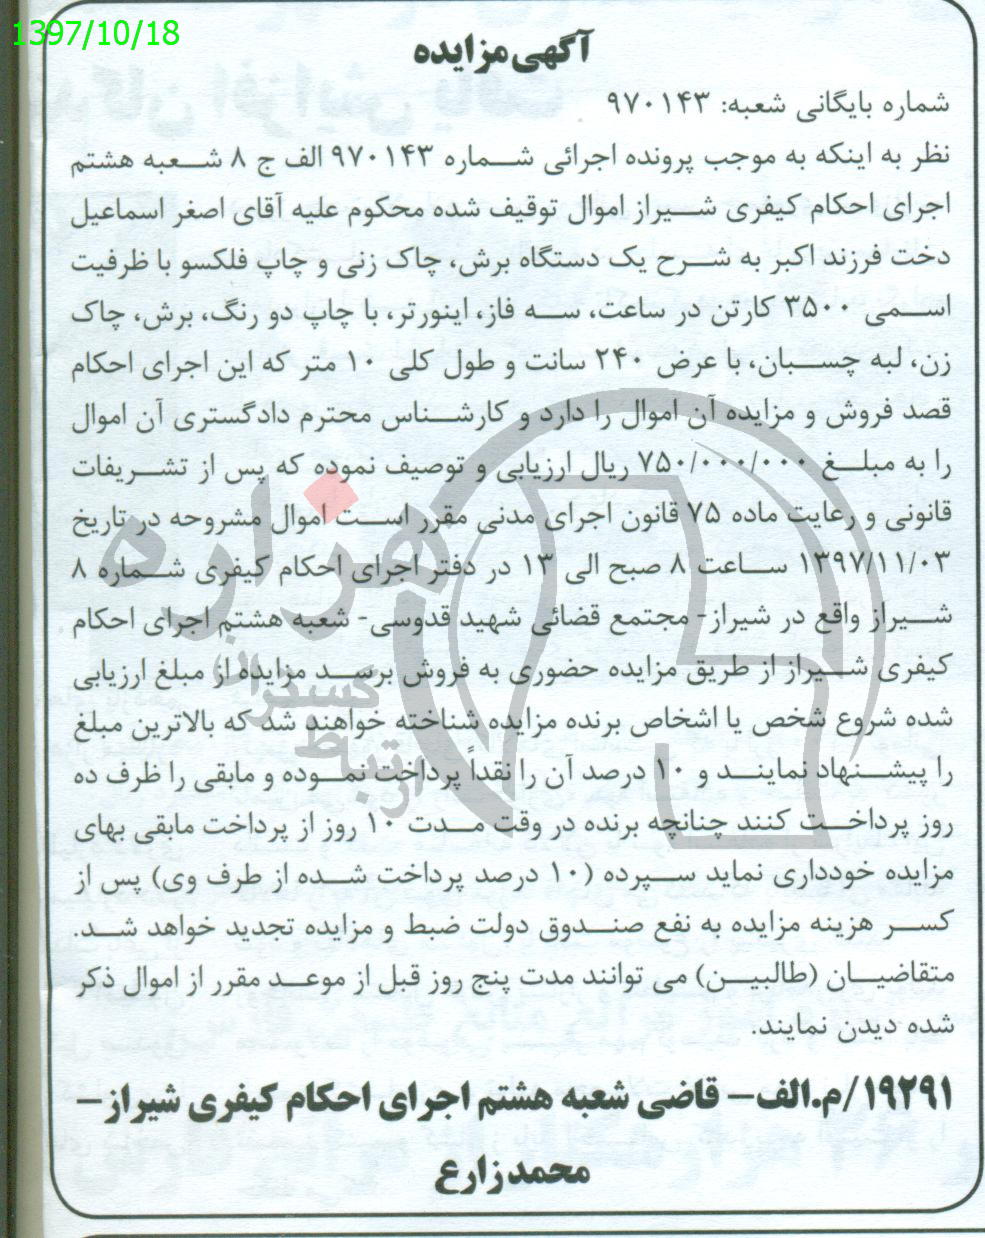 1397/10/18
آگهی مزایده
شماره بایگانی شعبه: ۹۷۰۱۴۳
نظر به اینکه به موجب پرونده اجرائی شماره ۹۷۰۱۴۳ الف ج ۸ شعبه هشتم
اجرای احکام کیفری شیراز اموال توقیف شده محکوم علیه آقای اصغر اسماعیل
دخت فرزند اکبر به شرح یک دستگاه برش، چاک زنی و چاپ فلکسو با ظرفیت
اسمی ۳۵۰۰ کارتن در ساعت، سه فاز، اینورتر، با چاپ دو رنگ، برش، چاک
زن، لبه چسبان، با عرض ۲۴۰ سانت و طول کلی ۱۰ متر که این اجرای احکام
قصد فروش و مزایده آن اموال را دارد و کارشناس محترم دادگستری آن اموال
را به مبلغ ۷۵۰/۰۰۰/۰۰۰ ریال ارزیابی و توصیف نموده که پس از تشریفات
قانونی و رعایت ماده ۷۵ قانون اجرای مدنی مقرر است اموال مشروحه در تاریخ
۱۳۹۷/۱۱/۰۳ ساعت ۸ صبح الی ۱۳ در دفتر اجرای احکام کیفری شماره ۸
شیراز واقع در شیراز- مجتمع قضائی شهید قدوسی- شعبه هشتم اجرای احکام
کیفری شیراز از طریق مزایده حضوری به فروش برسد مزایده از مبلغ ارزیابی
شده شروع شخص یا اشخاص برنده مزایده شناخته خواهند شد که بالاترین مبلغ
را پیشنهاد نمایند و ۱۰ درصد آن را نقداً پرداخت نموده و مابقی را ظرف ده
روز پرداخت کنند چنانچه برنده در وقت مدت ۱۰ روز از پرداخت مابقی بهای
مزایده خودداری نماید سپرده (۱۰ درصد پرداخت شده از طرف وی) پس از
کسر هزینه مزایده به نفع صندوق دولت ضبط و مزایده تجدید خواهد شد.
متقاضیان (طالبین) می توانند مدت پنج روز قبل از موعد مقرر از اموال ذکر
شده دیدن نمایند.
۱۹۲۹۱/م.الف– قاضی شعبه هشتم اجرای احکام کیفری شیراز–
محمد زارع
هزاره
گستران
ارتباط